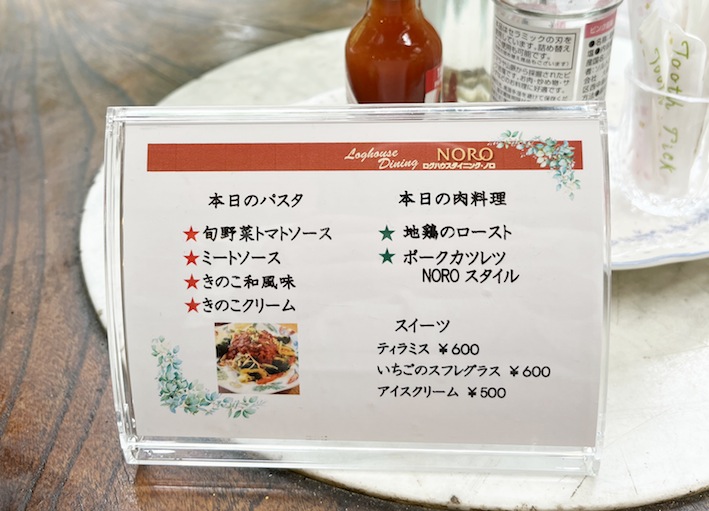 Loghouse
Dining
NORO
ログハウスダイニング・ノロ
本日のパスタ
★旬野菜トマトソース
★ミートソース
★きのこ和風味
★きのこクリーム
本日の肉料理
★地鶏のロースト
★ポークカツレツ
NORO スタイル
スイーツ
ティラミス ¥600
いちごのスフレグラス ¥600
アイスクリーム ¥500
Tooth Pick